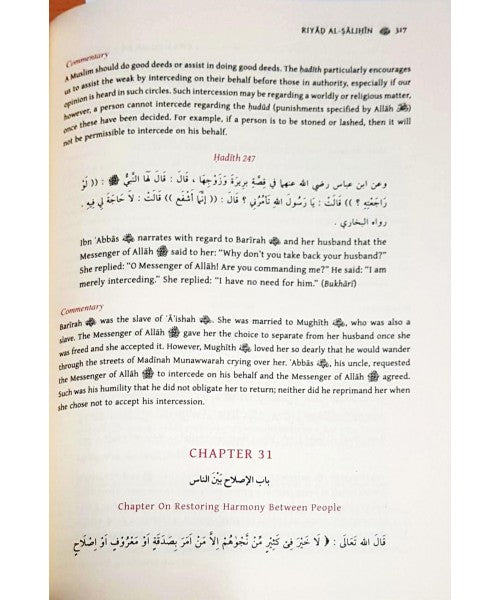 RIYĀḌ AL-ṢĀLIḤĪN 317
Commentary
A Muslim should do good deeds or assist in doing good deeds. The ḥadīth particularly encourages
us to assist the weak by interceding on their behalf before those in authority, especially if our
opinion is heard in such circles. Such intercession may be regarding a worldly or religious matter,
however, a person cannot intercede regarding the ḥudūd (punishments specified by Allāh ﷻ)
once these have been decided. For example, if a person is to be stoned or lashed, then it will
not be permissible to intercede on his behalf.
Ḥadīth 247
وعن ابن عباس رضي الله عنهما في قِصَّةِ بَرِيرَةَ وَزَوْجِهَا ، قَالَ : قَالَ لَهَا النَّبِيُّ ﷺ : (( لَوْ
رَاجَعْتِهِ ؟ )) قَالَتْ : يَا رَسُولَ اللهِ تَأْمُرُنِي ؟ قَالَ : (( إِنَّمَا أَشْفَع )) قَالَتْ : لَا حَاجَةَ لِي فِيهِ .
رواه البخاري .
Ibn ʿAbbās narrates with regard to Barīrah and her husband that the
Messenger of Allāh ﷺ said to her: “Why don’t you take back your husband?”
She replied: “O Messenger of Allāh! Are you commanding me?” He said: “I am
merely interceding.” She replied: “I have no need for him.” (Bukhārī)
Commentary
Barīrah was the slave of ʿĀʾishah . She was married to Mughīth , who was also a
slave. The Messenger of Allāh ﷺ gave her the choice to separate from her husband once she
was freed and she accepted it. However, Mughīth loved her so dearly that he would wander
through the streets of Madīnah Munawwarah crying over her. ʿAbbās , his uncle, requested
the Messenger of Allāh ﷺ to intercede on his behalf and the Messenger of Allāh ﷺ agreed.
Such was his humility that he did not obligate her to return; neither did he reprimand her when
she chose not to accept his intercession.
CHAPTER 31
باب الإصلاح بَيْنَ الناس
Chapter On Restoring Harmony Between People
قَالَ الله تَعَالَى : ﴿ لَا خَيْرَ فِىْ كَثِيْرٍ مِّنْ نَّجْوٰهُمْ اِلَّا مَنْ اَمَرَ بِصَدَقَةٍ اَوْ مَعْرُوْفٍ اَوْ اِصْلَاحٍ